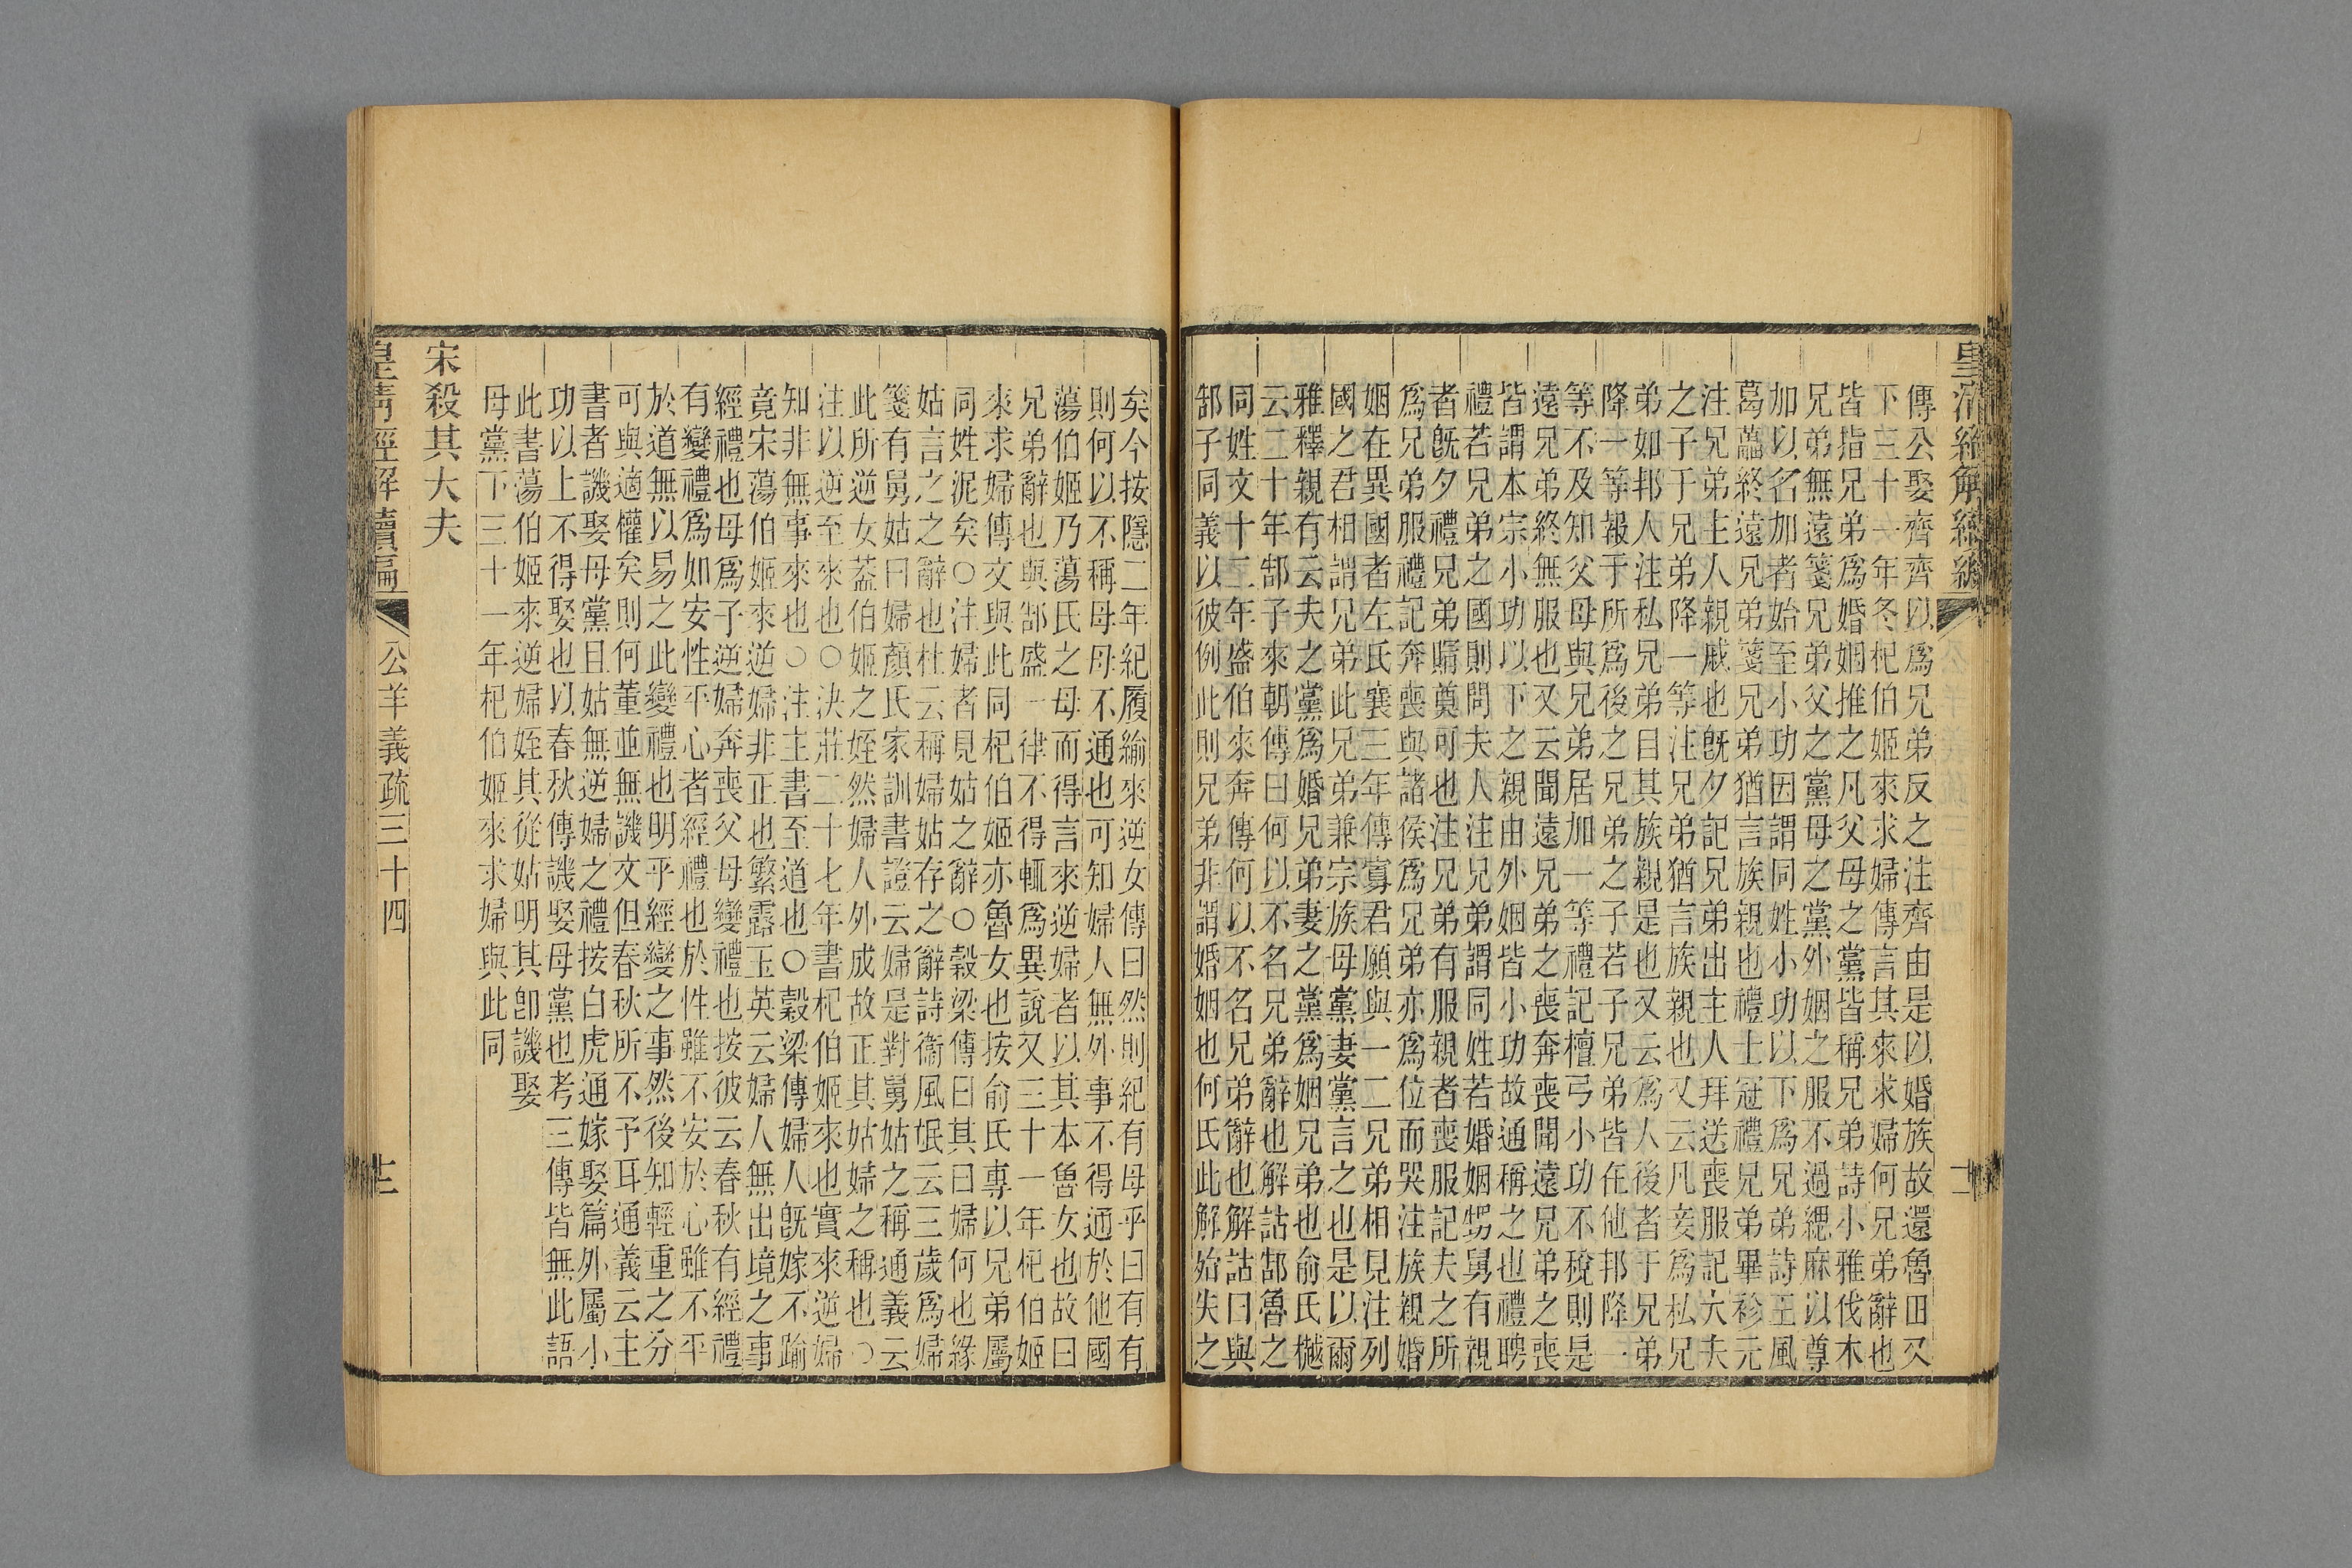 皇清經解續編
傳公娶齊齊以爲兄弟反之注齊由是以婚族故還魯田又
下三十一年冬杞伯姬來求婦傳言其來求婦何兄弟辭也
皆指兄弟爲婚姻推之凡父母之黨皆稱兄弟詩小雅伐木
兄弟無遠箋兄弟父之黨母之黨外姻之服不過緦麻以尊
加以名加者始至小功因謂同姓小功以下爲兄弟詩王風
葛藟終遠兄弟箋兄弟猶言族親也禮士冠禮兄弟畢袗元
注兄弟主人親戚也旣夕記兄弟出主人拜送喪服記大夫
之子于兄弟降一等注兄弟猶言族親也又云凡妾爲私兄
弟如邦人注私兄弟目其族親是也又云爲人後者于兄弟
降一等報于所爲後之兄弟之子若子兄弟皆在他邦降一
等不及知父母與兄弟居加一等禮記檀弓小功不稅則是
遠兄弟終無服也又云聞遠兄弟之喪奔喪聞遠兄弟之喪
皆謂本宗小功以下之親由外姻皆小功故通稱之也禮聘
禮若兄弟之國則問夫人注兄弟謂同姓若婚姻甥舅有親
者旣夕禮兄弟賵奠可也注兄弟有服親者喪服記夫之所
爲兄弟服禮記奔喪與諸侯爲兄弟亦爲位而哭注族親婚
姻在異國者左氏襄三年傳寡君願與一二兄弟相見注列
國之君相謂兄弟此兄弟兼宗族母黨妻黨言之也是以爾
雅釋親有云夫之黨爲婚兄弟妻之黨爲姻兄弟也俞氏樾
云二十年郜子來朝傳曰何以不名兄弟辭也解詁郜魯之
同姓文十二年盛伯來奔傳何以不名兄弟辭也解詁曰與
郜子同義以彼例此則兄弟非謂婚姻也何氏此解始失之
矣今按隱二年紀履緰來逆女傳曰然則紀有母乎曰有有
則何以不稱母母不通也可知婦人無外事不得通於他國
蕩伯姬乃蕩氏之母而得言來逆婦者以其本魯女也故曰
兄弟辭也與郜盛一律不得輒爲異說又三十一年杞伯姬
來求婦傳文與此同杞伯姬亦魯女也按俞氏專以兄弟屬
同姓泥矣○注婦者見姑之辭○穀梁傳曰其曰婦何也緣
姑言之之辭也杜云稱婦姑存之辭詩衞風氓云三歲爲婦
箋有舅姑曰婦顏氏家訓書證云婦是對舅姑之稱通義云
此所逆女葢伯姬之姪然婦人外成故正其姑婦之稱也○
注以逆至來也○決莊二十七年書杞伯姬來也實來逆婦
知非無事來也○注主書至道也○穀梁傳婦人旣嫁不踰
竟宋蕩伯姬來逆婦非正也繁露玉英云婦人無出境之事
經禮也母爲子逆婦奔喪父母變禮也按彼云春秋有經禮
有變禮爲如安性平心者經禮也於性雖不安於心雖不平
於道無以易之此變禮也明乎經變之事然後知輕重之分
可與適權矣則何董並無譏文但春秋所不予耳通義云主
書者譏娶母黨且姑無逆婦之禮按白虎通嫁娶篇外屬小
功以上不得娶也以春秋傳譏娶母黨也考三傳皆無此語
此書蕩伯姬來逆婦姪其從姑明其卽譏娶
母黨下三十一年杞伯姬來求婦與此同
宋殺其大夫
皇清經解續編
公羊義疏三十四